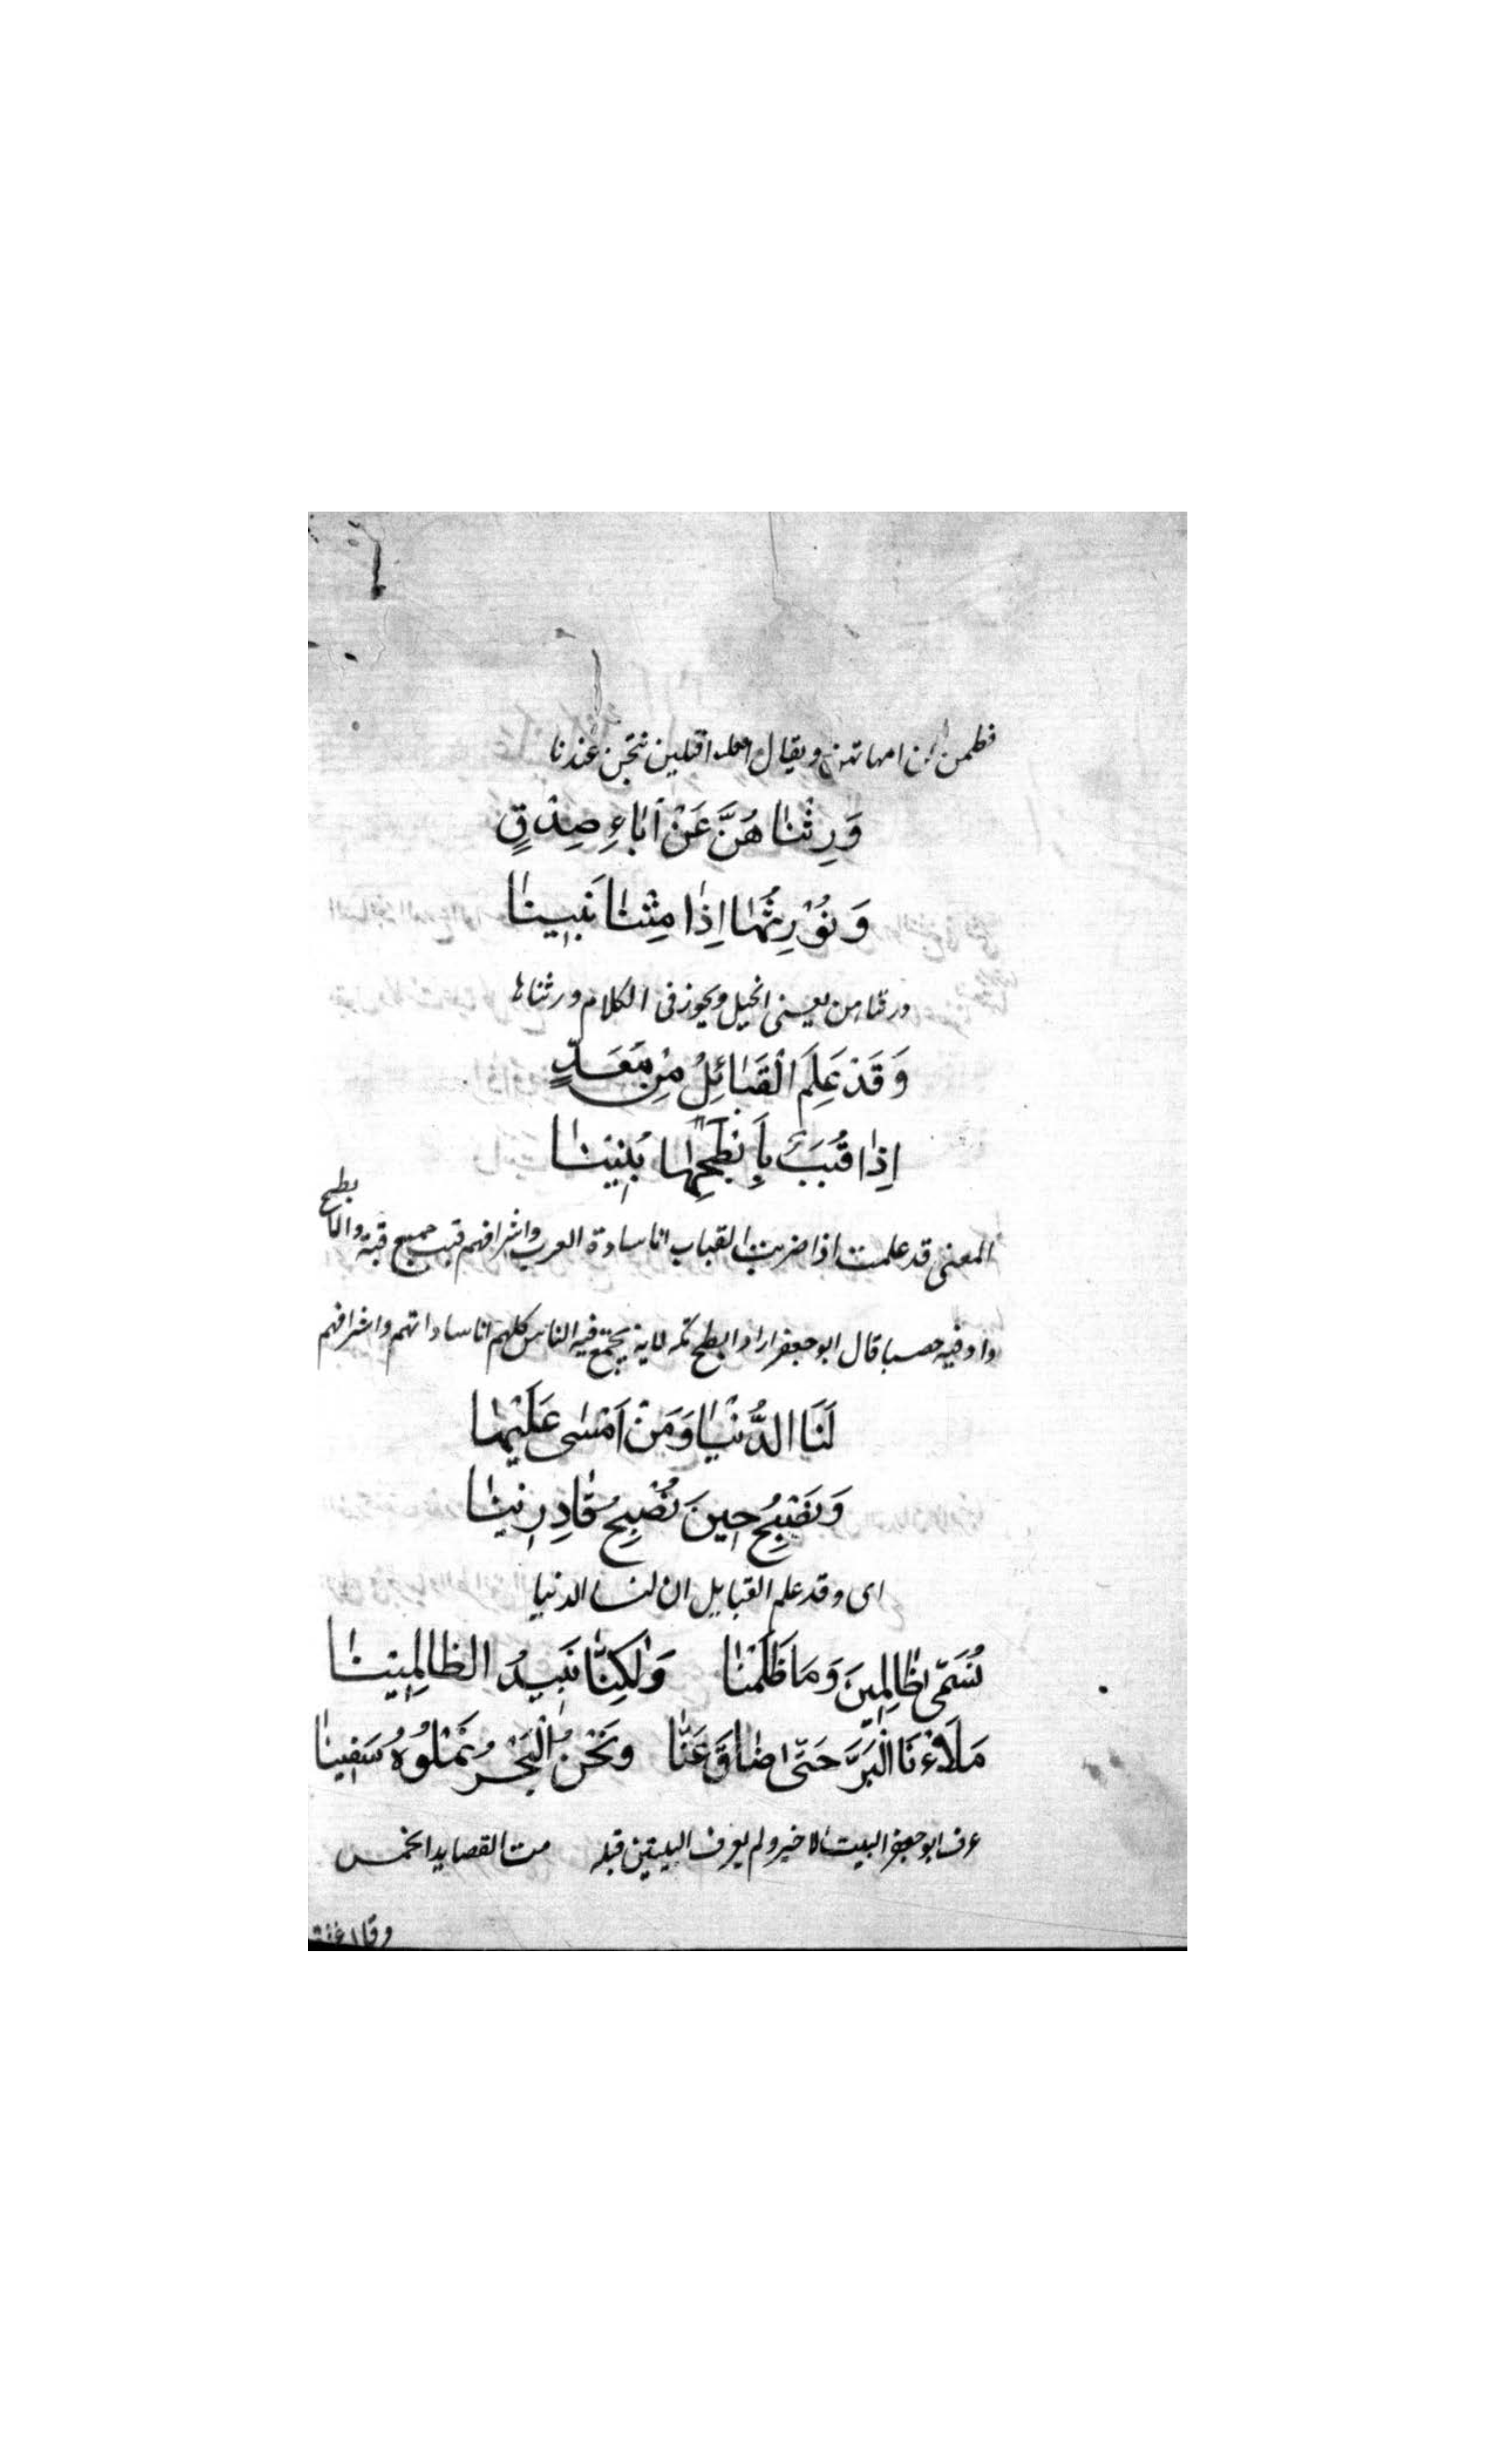 فطمن من امهاتهن ويقال افتلين نتجن عندنا
وَرِثْنَا هُنَّ عَنْ اٰبَاءِ صِدْقٍ
وَنُوْرِثُهَا اِذَا مِتْنَا بَنِينَا
ورثناهن يعنى الخيل ويجوز فى الكلام ورثناها
وَقَدْ عَلِمَ الْقَبَائِلُ مِنْ مَعَدٍّ
اِذَا قُبَبٌ بِاَبْطَحِهَا بُنِيْنَا
المعنى قد علمت اذا ضربت القباب انا سادة العرب واشرافهم قبب جميع قبة والابطح
واد فيه حصبا قال ابو جعفر اراد ابطح مكه لانه يجتمع فيه الناس كلهم انا ساداتهم واشرافهم
لَنَا الدُّنْيَا وَمَنْ اَمْسٰى عَلَيْهَا
وَنُصْبِحُ حِينَ نُصْبِحُ قَادِرِينَا
اى وقد علم القبايل ان لنا الدنيا
نُسَمّٰى ظَالِمِينَ وَمَا ظَلَمْنَا وَلٰكِنَّا نُبِيدُ الظَالِمِينَا
مَلَاءْنَا الْبَرَّ حَتّٰى ضَاقَ عَنَّا وَنَحْنُ الْبَحْرُ نَمْلُوهُ سَفِينَا
عرف ابو جعفر البيت الاخير ولم يعرف البيتين قبله مت القصايد الخمس
وقال